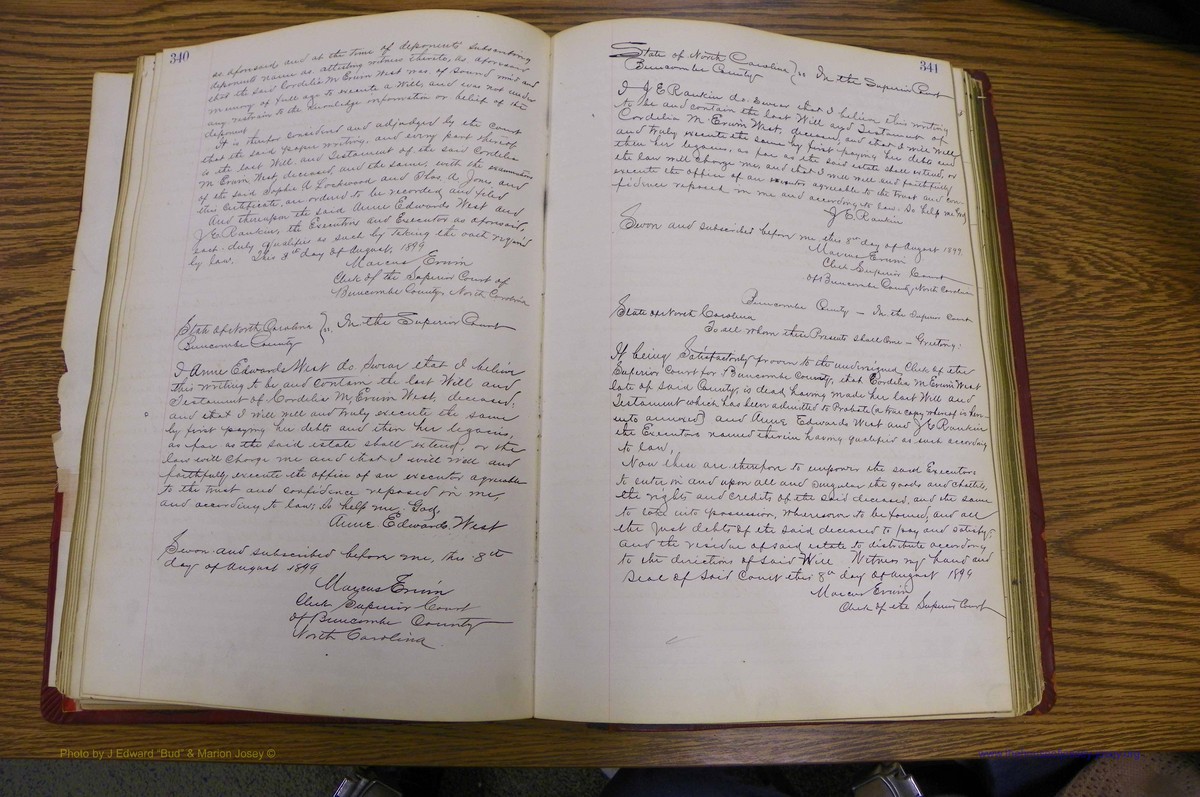 340
as aforesaid and at the time of deponents subscribing
deponents name as attesting witness thereto, as aforesaid
that the said Cordelia M Erwin West was of sound mind and
memory of full age to execute a Will, and was not under
any restraint to the knowledge information or belief of the
deponent
It is therefore considered and adjudged by the Court
that the said paper writing, and every part thereof
is the last Will and Testament of the said Cordelia
M Erwin West deceased, and the same, with the examination
of the said Sophie A Lockwood and Thos. A. Jones and
this Certificate, are ordered to be recorded and filed
And thereupon the said Annie Edwards West and
J. E. Rankin, the Executrix and Executor as aforesaid,
each duly qualifies as such by taking the oath required
by law. This 8th day of August, 1899
Marcus Erwin
Clerk of the Superior Court of
Buncombe County, North Carolina
State of North Carolina } ss. In the Superior Court
Buncombe County
I Annie Edwards West do swear that I believe
this writing to be and contain the last Will and
Testament of Cordelia M. Erwin West, deceased;
and that I will well and truly execute the same
by first paying her debts and then her legacies,
as far as the said estate shall extend, or the
law will charge me and that I will well and
faithfully execute the office of an executor agreeable
to the trust and confidence reposed in me,
and according to law; So help me, God,
Annie Edwards West
Sworn and subscribed before me, this 8th
day of August 1899
Marcus Erwin
Clerk Superior Court
of Buncombe County
North Carolina
341
State of North Carolina } ss In the Superior Court
Buncombe County
I J. E. Rankin do swear that I believe this writing
to be and contain the last Will and Testament of
Cordelia M. Erwin West, deceased, and that I will well
and truly execute the same by first paying her debts and
then her legacies, as far as the said estate shall extend, or
the law will charge me, and that I will well and faithfully
execute the office of an executor agreeable to the trust and con-
fidence reposed in me and according to law. So help me, God,
J. E. Rankin
Sworn and subscribed before me, this 8th day of August 1899
Marcus Erwin
Clerk Superior Court
of Buncombe County, North Carolina
Buncombe County — In the Superior Court
State of North Carolina
To all whom these Presents shall Come — Greeting:
It being Satisfactorily proven to the undersigned Clerk of the
Superior Court for Buncombe County, that Cordelia M Erwin West
late of said County, is dead, having made her last Will and
Testament which has been admitted to Probate (a true copy whereof is here-
unto annexed) and Annie Edwards West and J. E. Rankin
the Executors named therein having qualified as such according
to law,
Now these are therefore to empower the said Executors
to enter in and upon all and singular the goods and chattels,
the rights and credits of the said deceased, and the same
to take into possession, wheresoever to be found, and all
the just debts of the said deceased to pay and satisfy;
and the residue of said estate to distribute according
to the directions of said Will Witness my hand and
Seal of Said Court this 8th day of August 1899
Marcus Erwin
Clerk of the Superior Court
Photo by J Edward "Bud" & Marion Josey ©